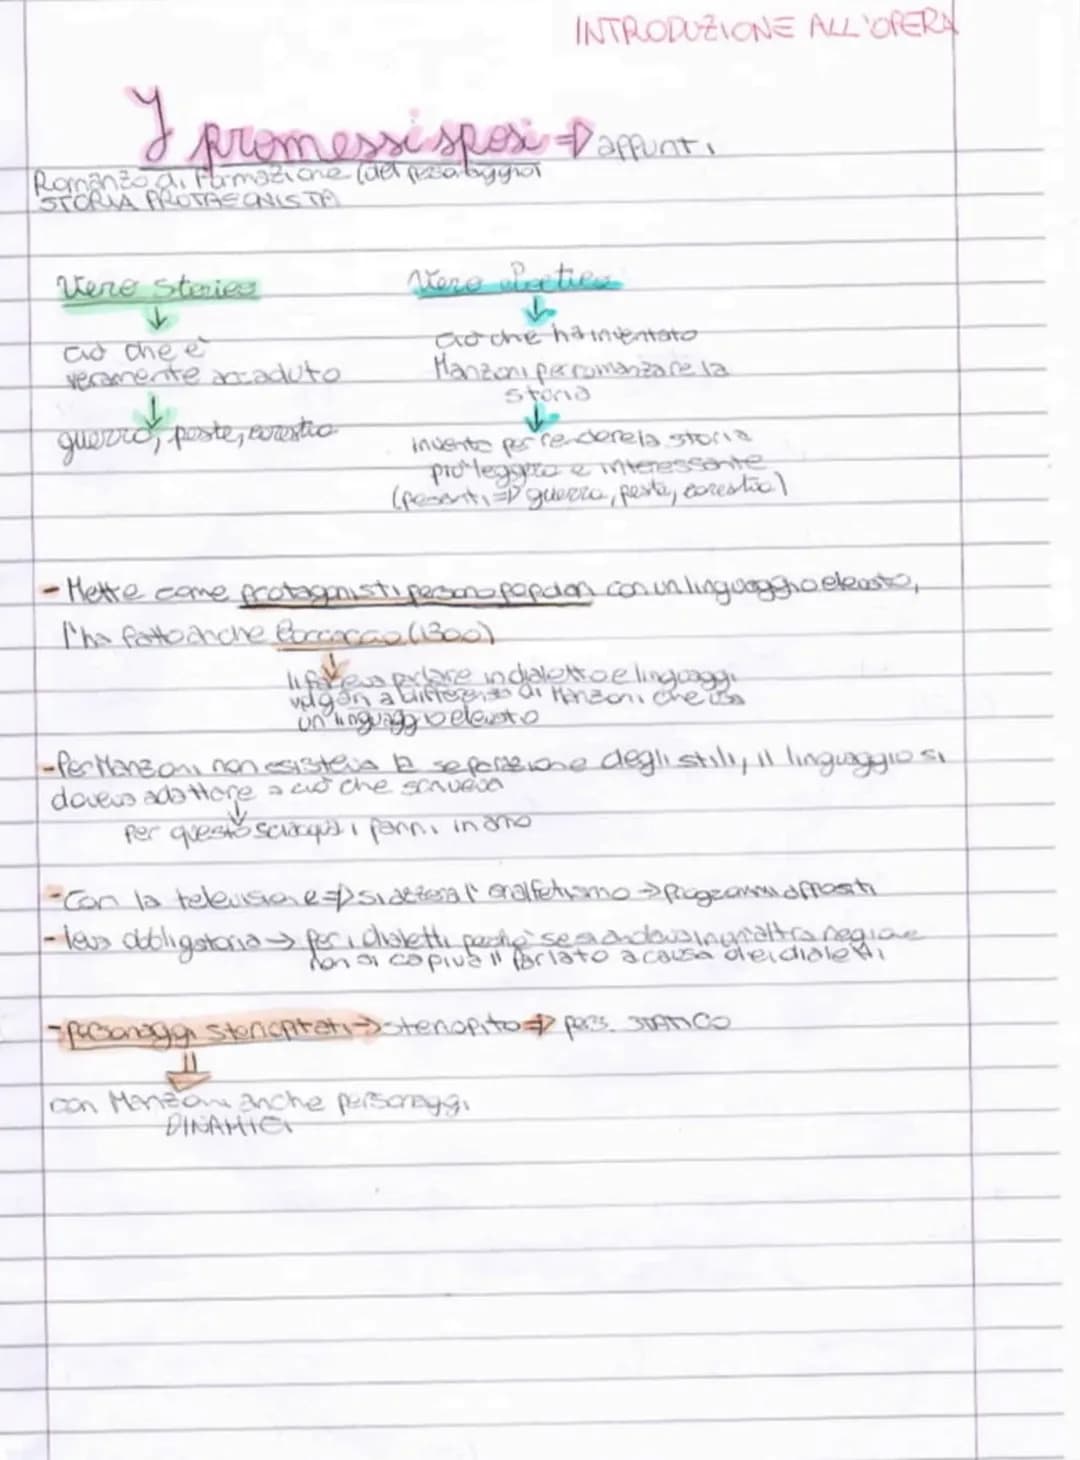 INTRODUZIONE ALL'OPERA
I promessi sposi => appunti
Romanzo di formazione (del personaggio)
STORIA PROTAGONISTA
Vero Storico
Vero Poetico
ciò che è
veramente accaduto
guerra, peste, carestia
ciò che ha inventato
Manzoni per romanzare la
storia
invento per rendere la storia
più leggera e interessante
(pesanti => guerra, peste, carestia)
- Mette come protagonisti persone popolari con un linguaggio elevato,
l'ha fatto anche Boccaccio (1300)
li faceva parlare in dialetto e linguaggi
volgari a differenza di Manzoni che usa
un linguaggio elevato
- Per Manzoni non esisteva la separazione degli stili, il linguaggio si
doveva adattare a ciò che scriveva
per questo sciacquò i panni in arno
- Con la televisione => si azzera l'analfetismo -> programmi apposti
- leva obbligatoria -> per i dialetti perchè se si andava in un'altra regione
non si capiva il parlato a causa dei dialetti
- personaggi stereotipati -> => pers. STATICO
con Manzoni anche personaggi
DINAMICI